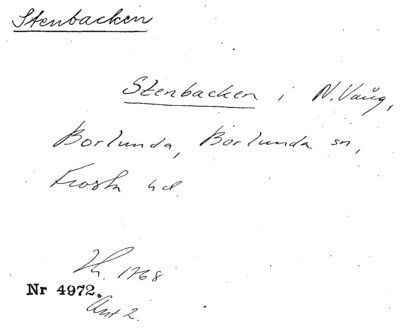 Stenbacken
Stenbacken i N. Vång,
Borlunda, Borlunda sn,
Frosta hd
1768
Nr 4972.
Akt 2.